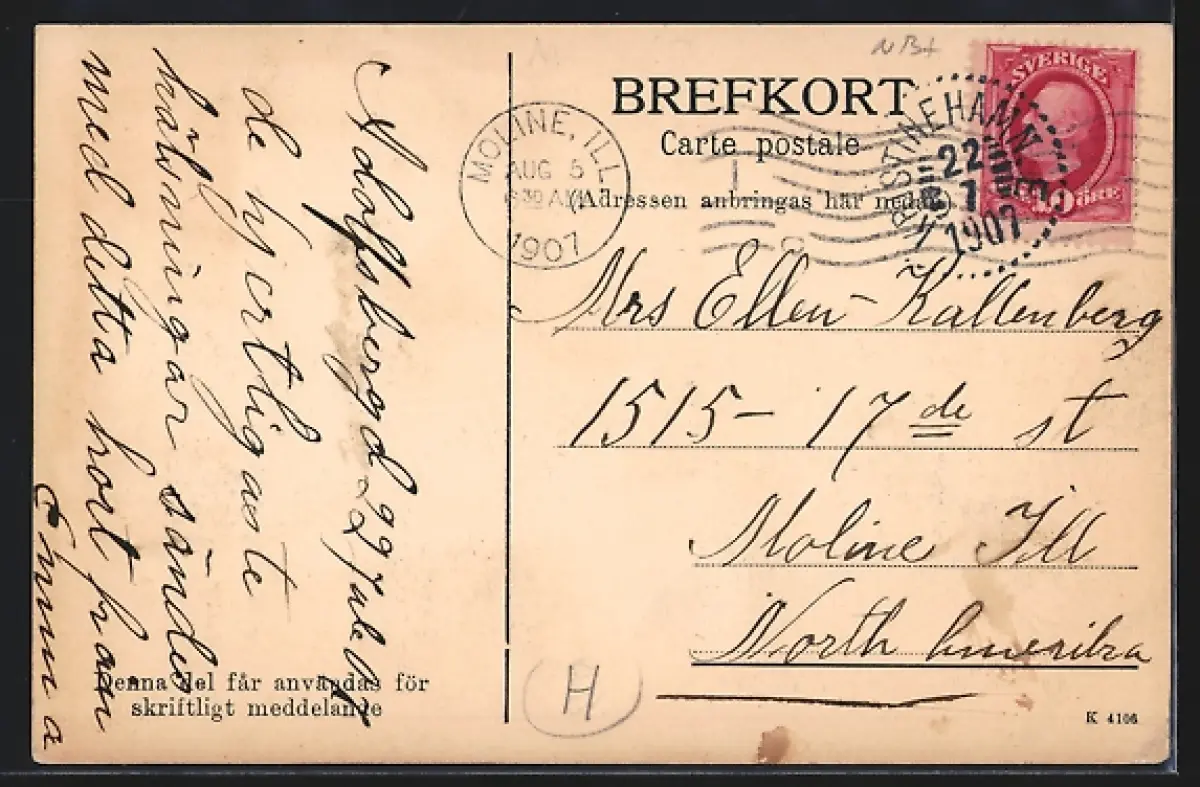 N B+
BREFKORT
Carte postale
(Adressen anbringas här nedan.
SVERIGE
ÖRE
KRISTINEHAMN
22
7
1907
MOLINE, ILL
AUG 5
6 30 AM
1907
Mrs Ellen Källenberg
1515 – 17 de st
Moline Ill
North Amerika
K 4106
H
Adolfsberg d 22 Juli
de hjertligaste
hälsningar sändes
med detta kort från
Emma
Denna del får användas för
skriftligt meddelande